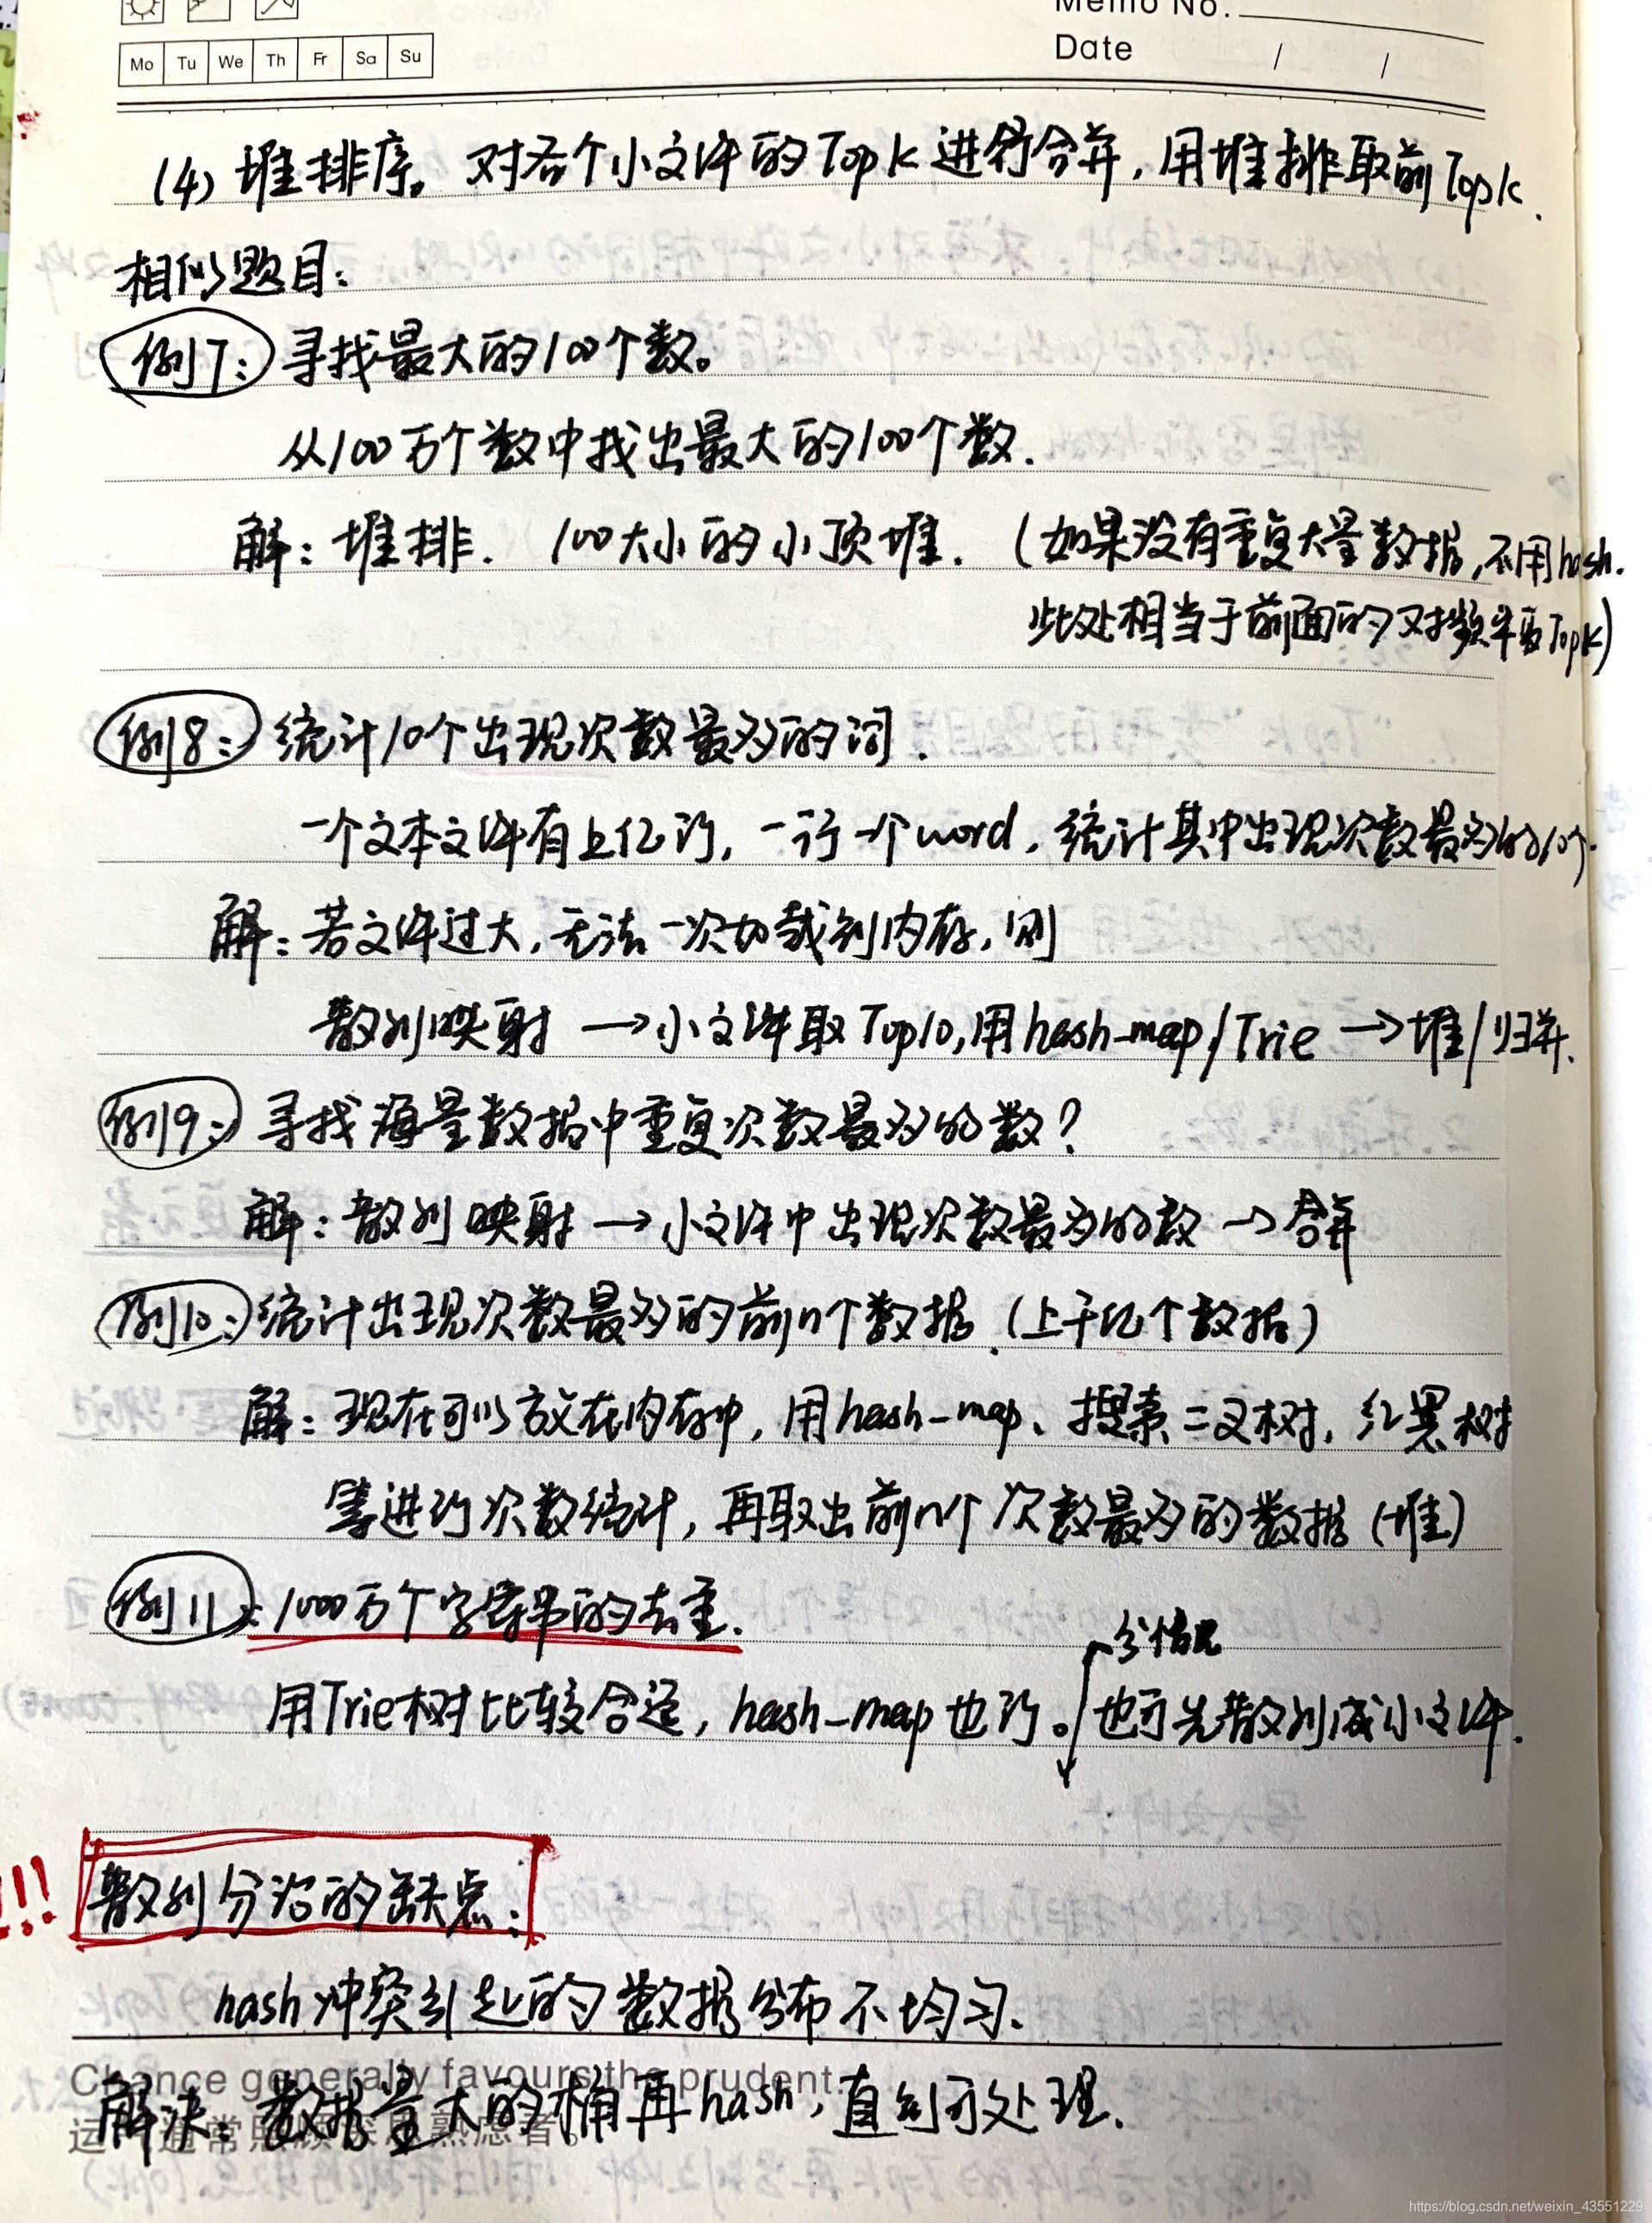 Memo No.
Mo Tu We Th Fr Sa Su
Date / /
(4) 堆排序。对各个小文件的Top K进行合并,用堆排取前Top K.
相似题目:
例7: 寻找最大的100个数。
从100万个数中找出最大的100个数.
解: 堆排. 100大小的小顶堆. (如果没有重复大量数据,不用hash.
此处相当于前面的对频率取Top K)
例8: 统计10个出现次数最多的词.
一个文本文件有上亿行, 一行一个word, 统计其中出现次数最多的10个.
解: 若文件过大, 无法一次加载到内存, 则
散列映射 → 小文件取Top10,用hash_map/Trie → 堆/归并.
例9: 寻找海量数据中重复次数最多的数?
解: 散列映射 → 小文件中出现次数最多的数 → 合并
例10: 统计出现次数最多的前n个数据.(上千亿个数据)
解: 现在可以放在内存中, 用hash_map、搜索二叉树, 红黑树
等进行次数统计, 再取出前n个次数最多的数据 (堆)
例11: 1000万个字符串的去重.
分情况
用Trie树比较合适, hash_map也行。也可先散列成小文件.
!!! 散列分治的缺点:
hash冲突引起的数据分布不均匀.
Chance generally favours the prudent.
解决: 数据量大的桶再hash, 直到可处理.
https://blog.csdn.net/weixin_43551229